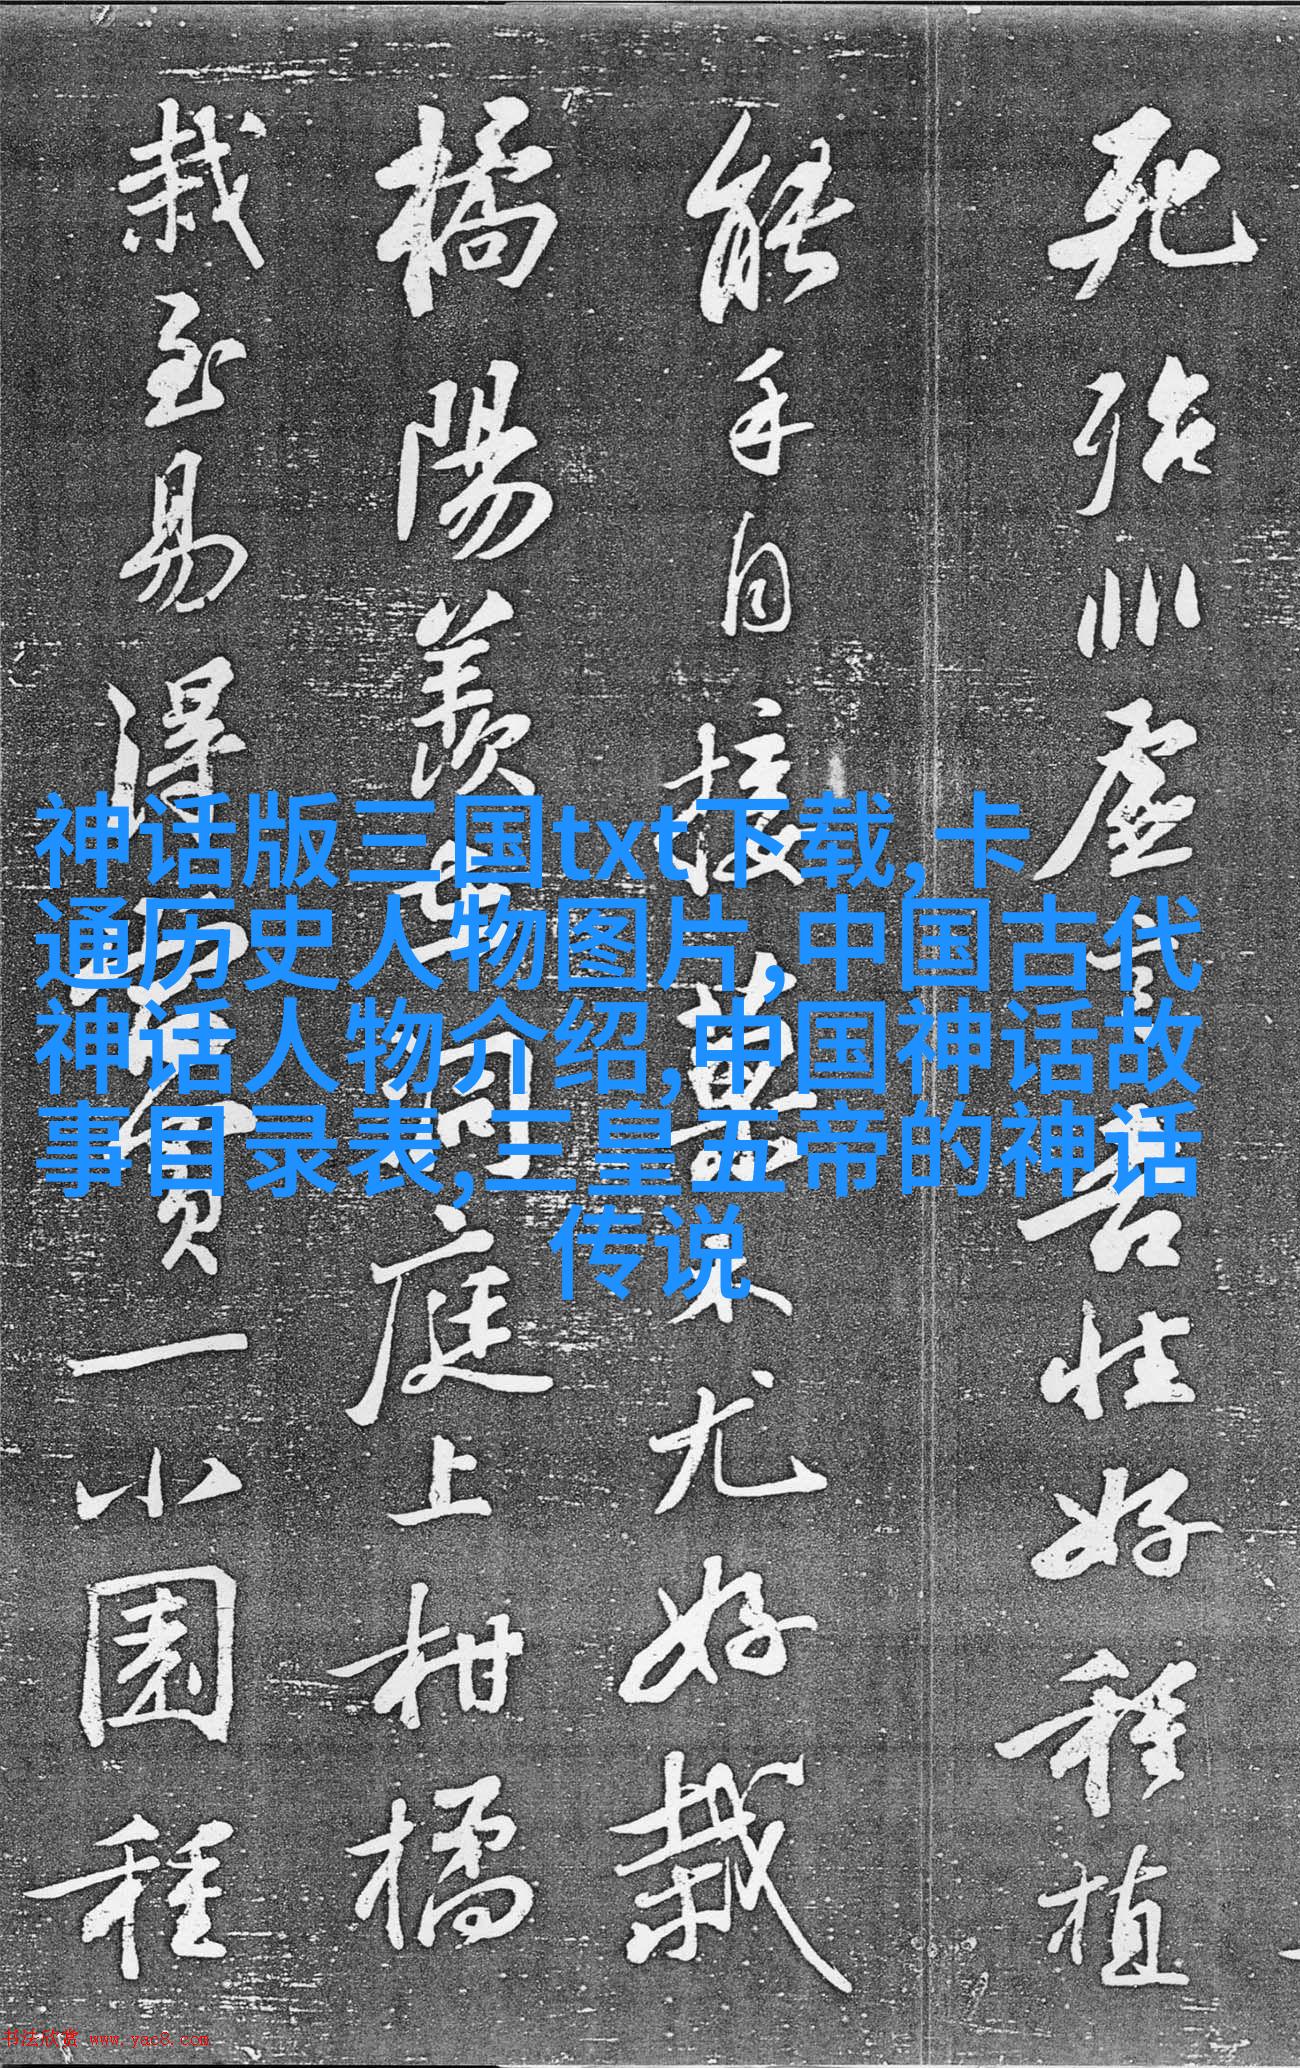 死殆非虛言吾性好種植
能手自接菓木尤好栽
橘陽羨洞庭上柑橘
栽至易得買一小園種
神话版三国txt下载,卡
通历史人物图片,中国古代
神话人物介绍,中国神话故
事目录表,三皇五帝的神话
传说
书法欣赏 www.yac8.com